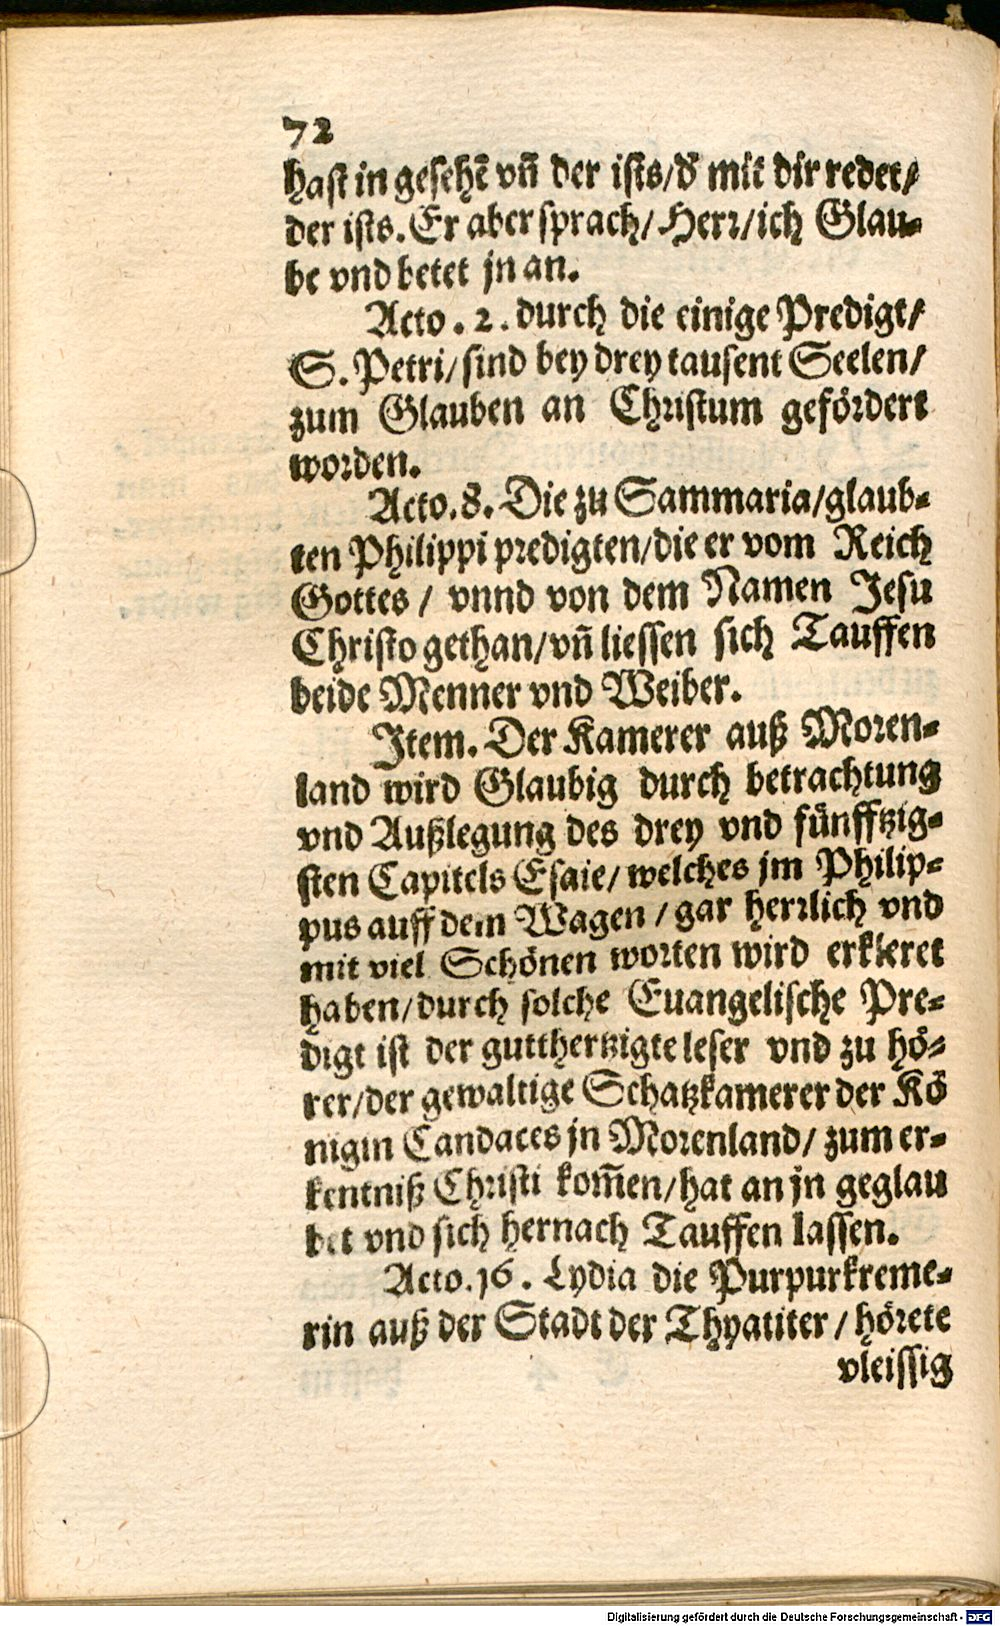 72
hast in gesehẽ vñ der ists/d' mit dir redet/
der ists. Er aber sprach/ Herr/ich Glau-
be vnd betet jn an.
Acto. 2. durch die einige Predigt/
S. Petri/ sind bey drey tausent Seelen/
zum Glauben an Christum gefördert
worden.
Acto. 8. Die zu Sammaria/glaub-
ten Philippi predigten/die er vom Reich
Gottes / vnnd von dem Namen Jesu
Christo gethan/vñ liessen sich Tauffen
beide Menner vnd Weiber.
Item. Der Kamerer auß Moren-
land wird Glaubig durch betrachtung
vnd Außlegung des drey vnd fünfftzig-
sten Capitels Esaie/ welches jm Philip-
pus auff dem Wagen / gar herrlich vnd
mit viel Schönen worten wird erkleret
haben/durch solche Euangelische Pre-
digt ist der gutthertzigte leser vnd zu hö-
rer/der gewaltige Schatzkamerer der Kö
nigin Candaces jn Morenland/ zum er-
kentniß Christi kom̃en/hat an jn geglau
bet vnd sich hernach Tauffen lassen.
Acto. 16. Lydia die Purpurkreme-
rin auß der Stadt der Thyatiter / hörete
vleissig
Digitalisierung gefördert durch die Deutsche Forschungsgemeinschaft - DFG